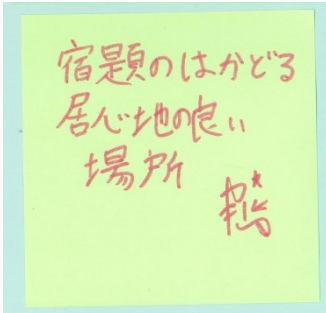 宿題のはかどる
居心地の良い
場所